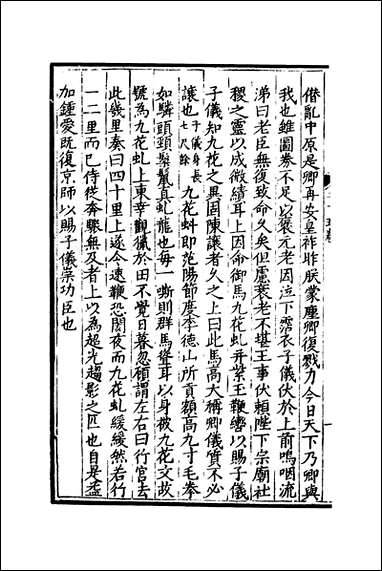 僭亂中原是卿再安皇祚昨朕蒙塵卿復戮力今日天下乃卿與
我也雖圖券不足以褒元老因泣下霑衣子儀伏於上前嗚咽流
涕曰老臣無復致命久矣但慮衰老不堪王事伏賴陛下宗廟社
稷之靈以成微績耳上因命御馬九花虬并紫玉鞭轡以賜子儀
子儀知九花之異固陳讓者久之上曰此馬高大稱卿儀質不必
讓也子儀身長七尺餘九花虬即范陽節度李德山所貢額高九寸毛拳
如鱗頭頸鬃鬣真虬龍也每一嘶則群馬聳耳以身被九花文故
號為九花虬上東幸觀獵於田不覺日暮忽顧謂左右曰行宮去
此幾里奏曰四十里上遂令速鞭恐閡夜而九花虬緩緩然若行
一二里而已侍從奔驟無及者上以為超光趨影之匹也自是益
加鍾愛既復京師以賜子儀崇功臣也